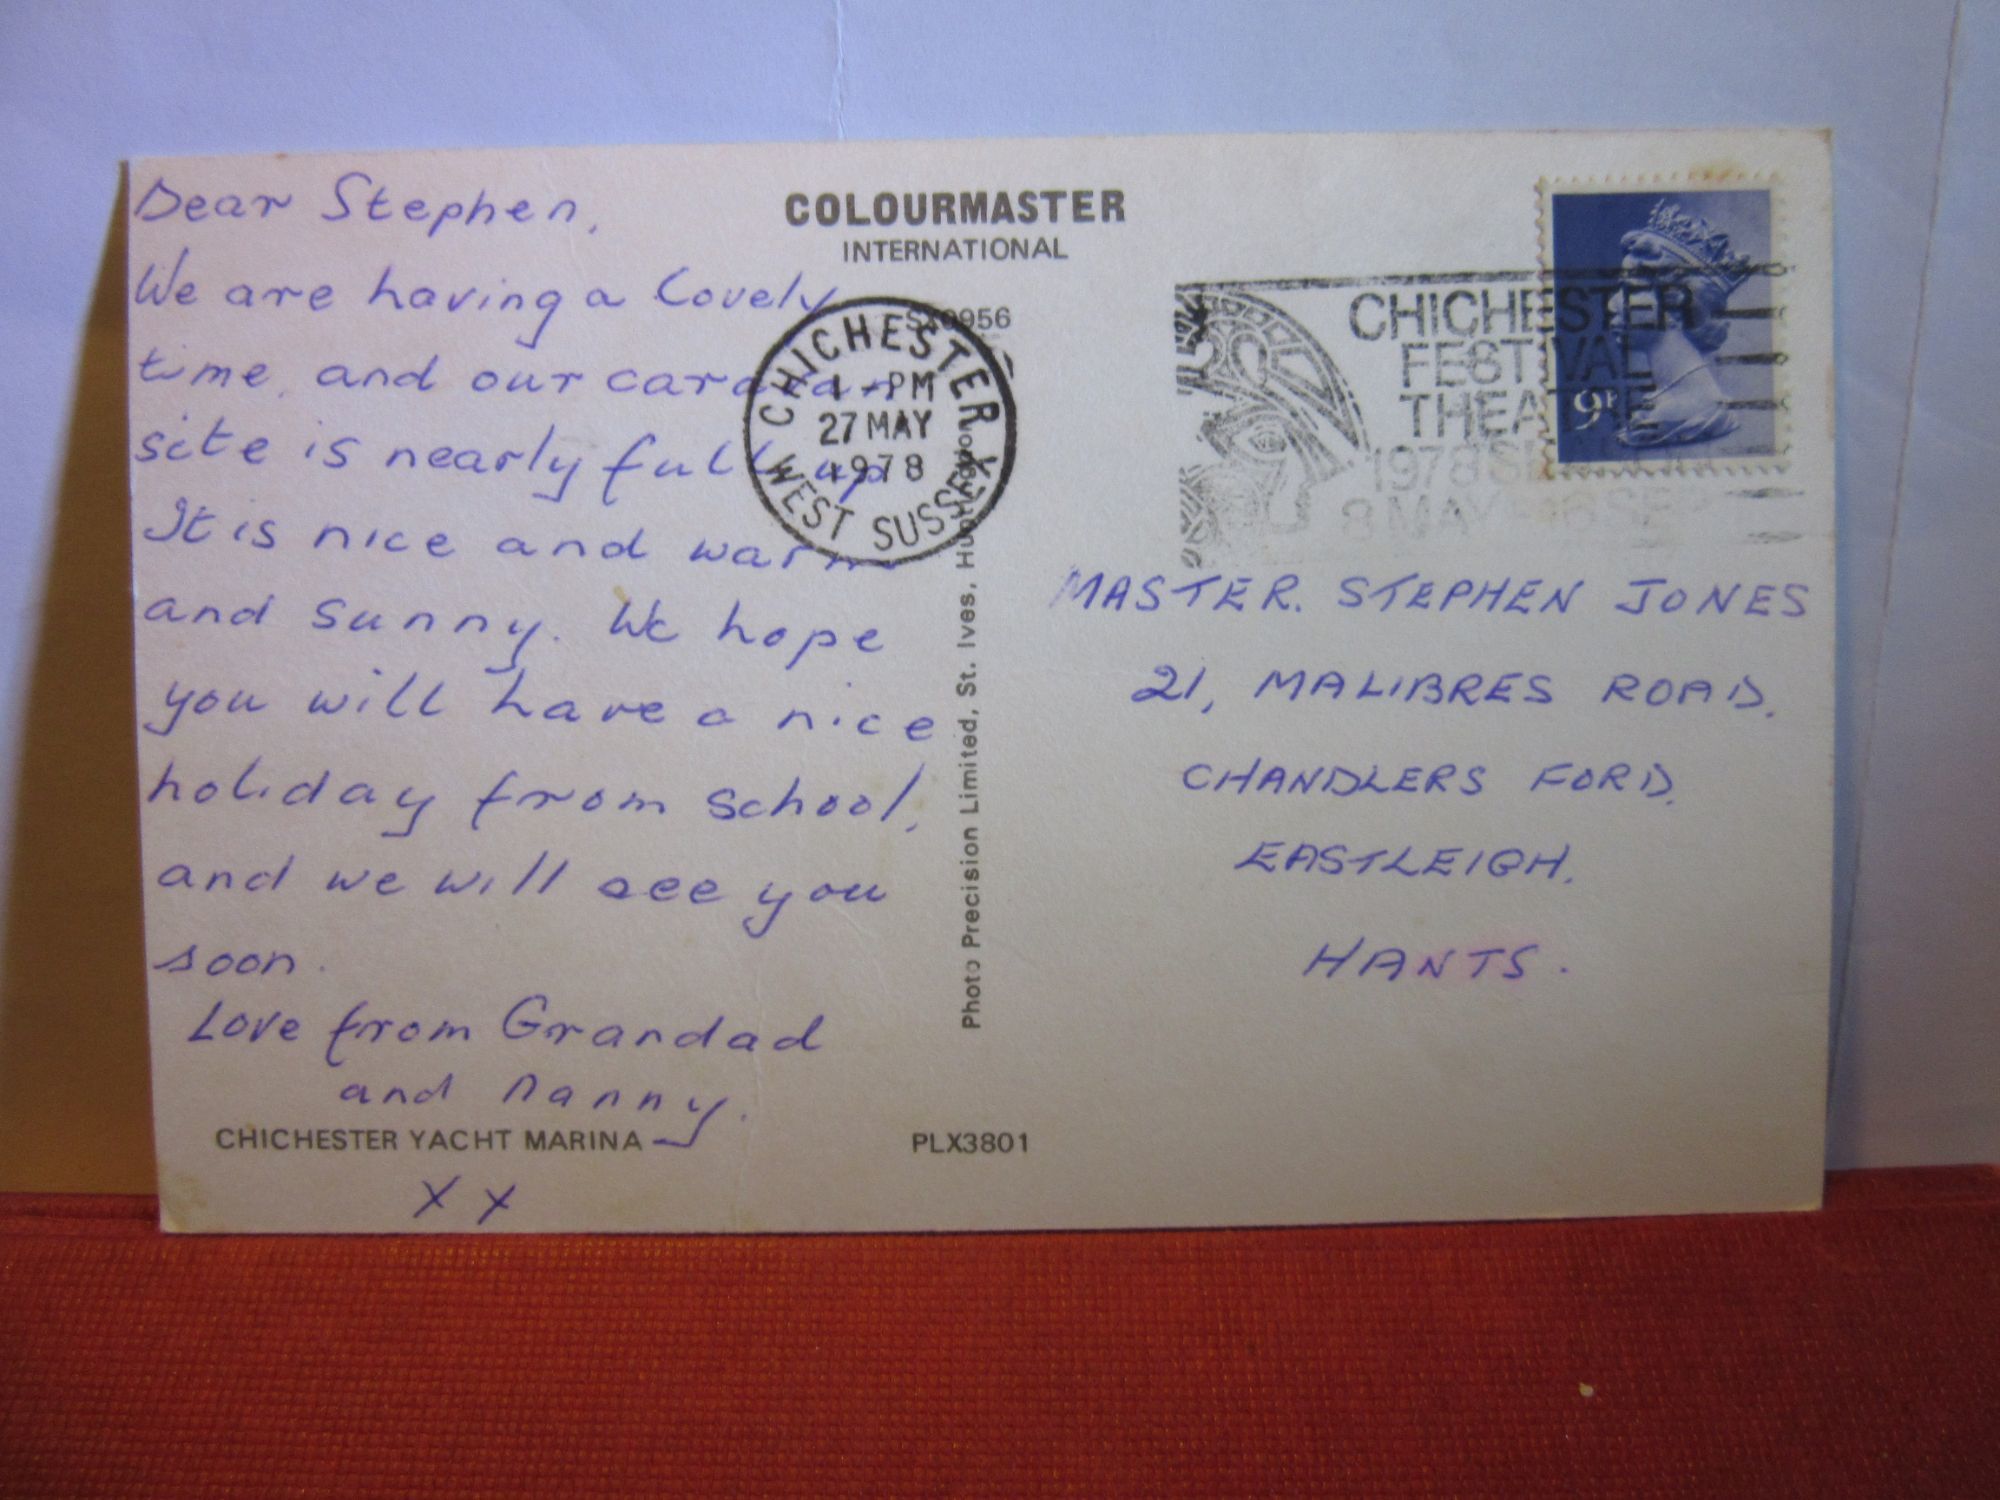 Dear Stephen,
We are having a Lovely
time, and our caravan
site is nearly full up
It is nice and warm
and sunny. We hope
you will have a nice
holiday from school,
and we will see you
soon.
Love from Grandad
and Nanny.
CHICHESTER YACHT MARINA
X X
COLOURMASTER
INTERNATIONAL
CHICHESTER
1 - PM
27 MAY
1978
WEST SUSSEX
Photo Precision Limited, St. Ives, Huntingdon
PLX3801
CHICHESTER
FESTIVAL
THEATRE
1978
8 MAY
9P
MASTER. STEPHEN JONES
21, MALIBRES ROAD.
CHANDLERS FORD.
EASTLEIGH.
HANTS.